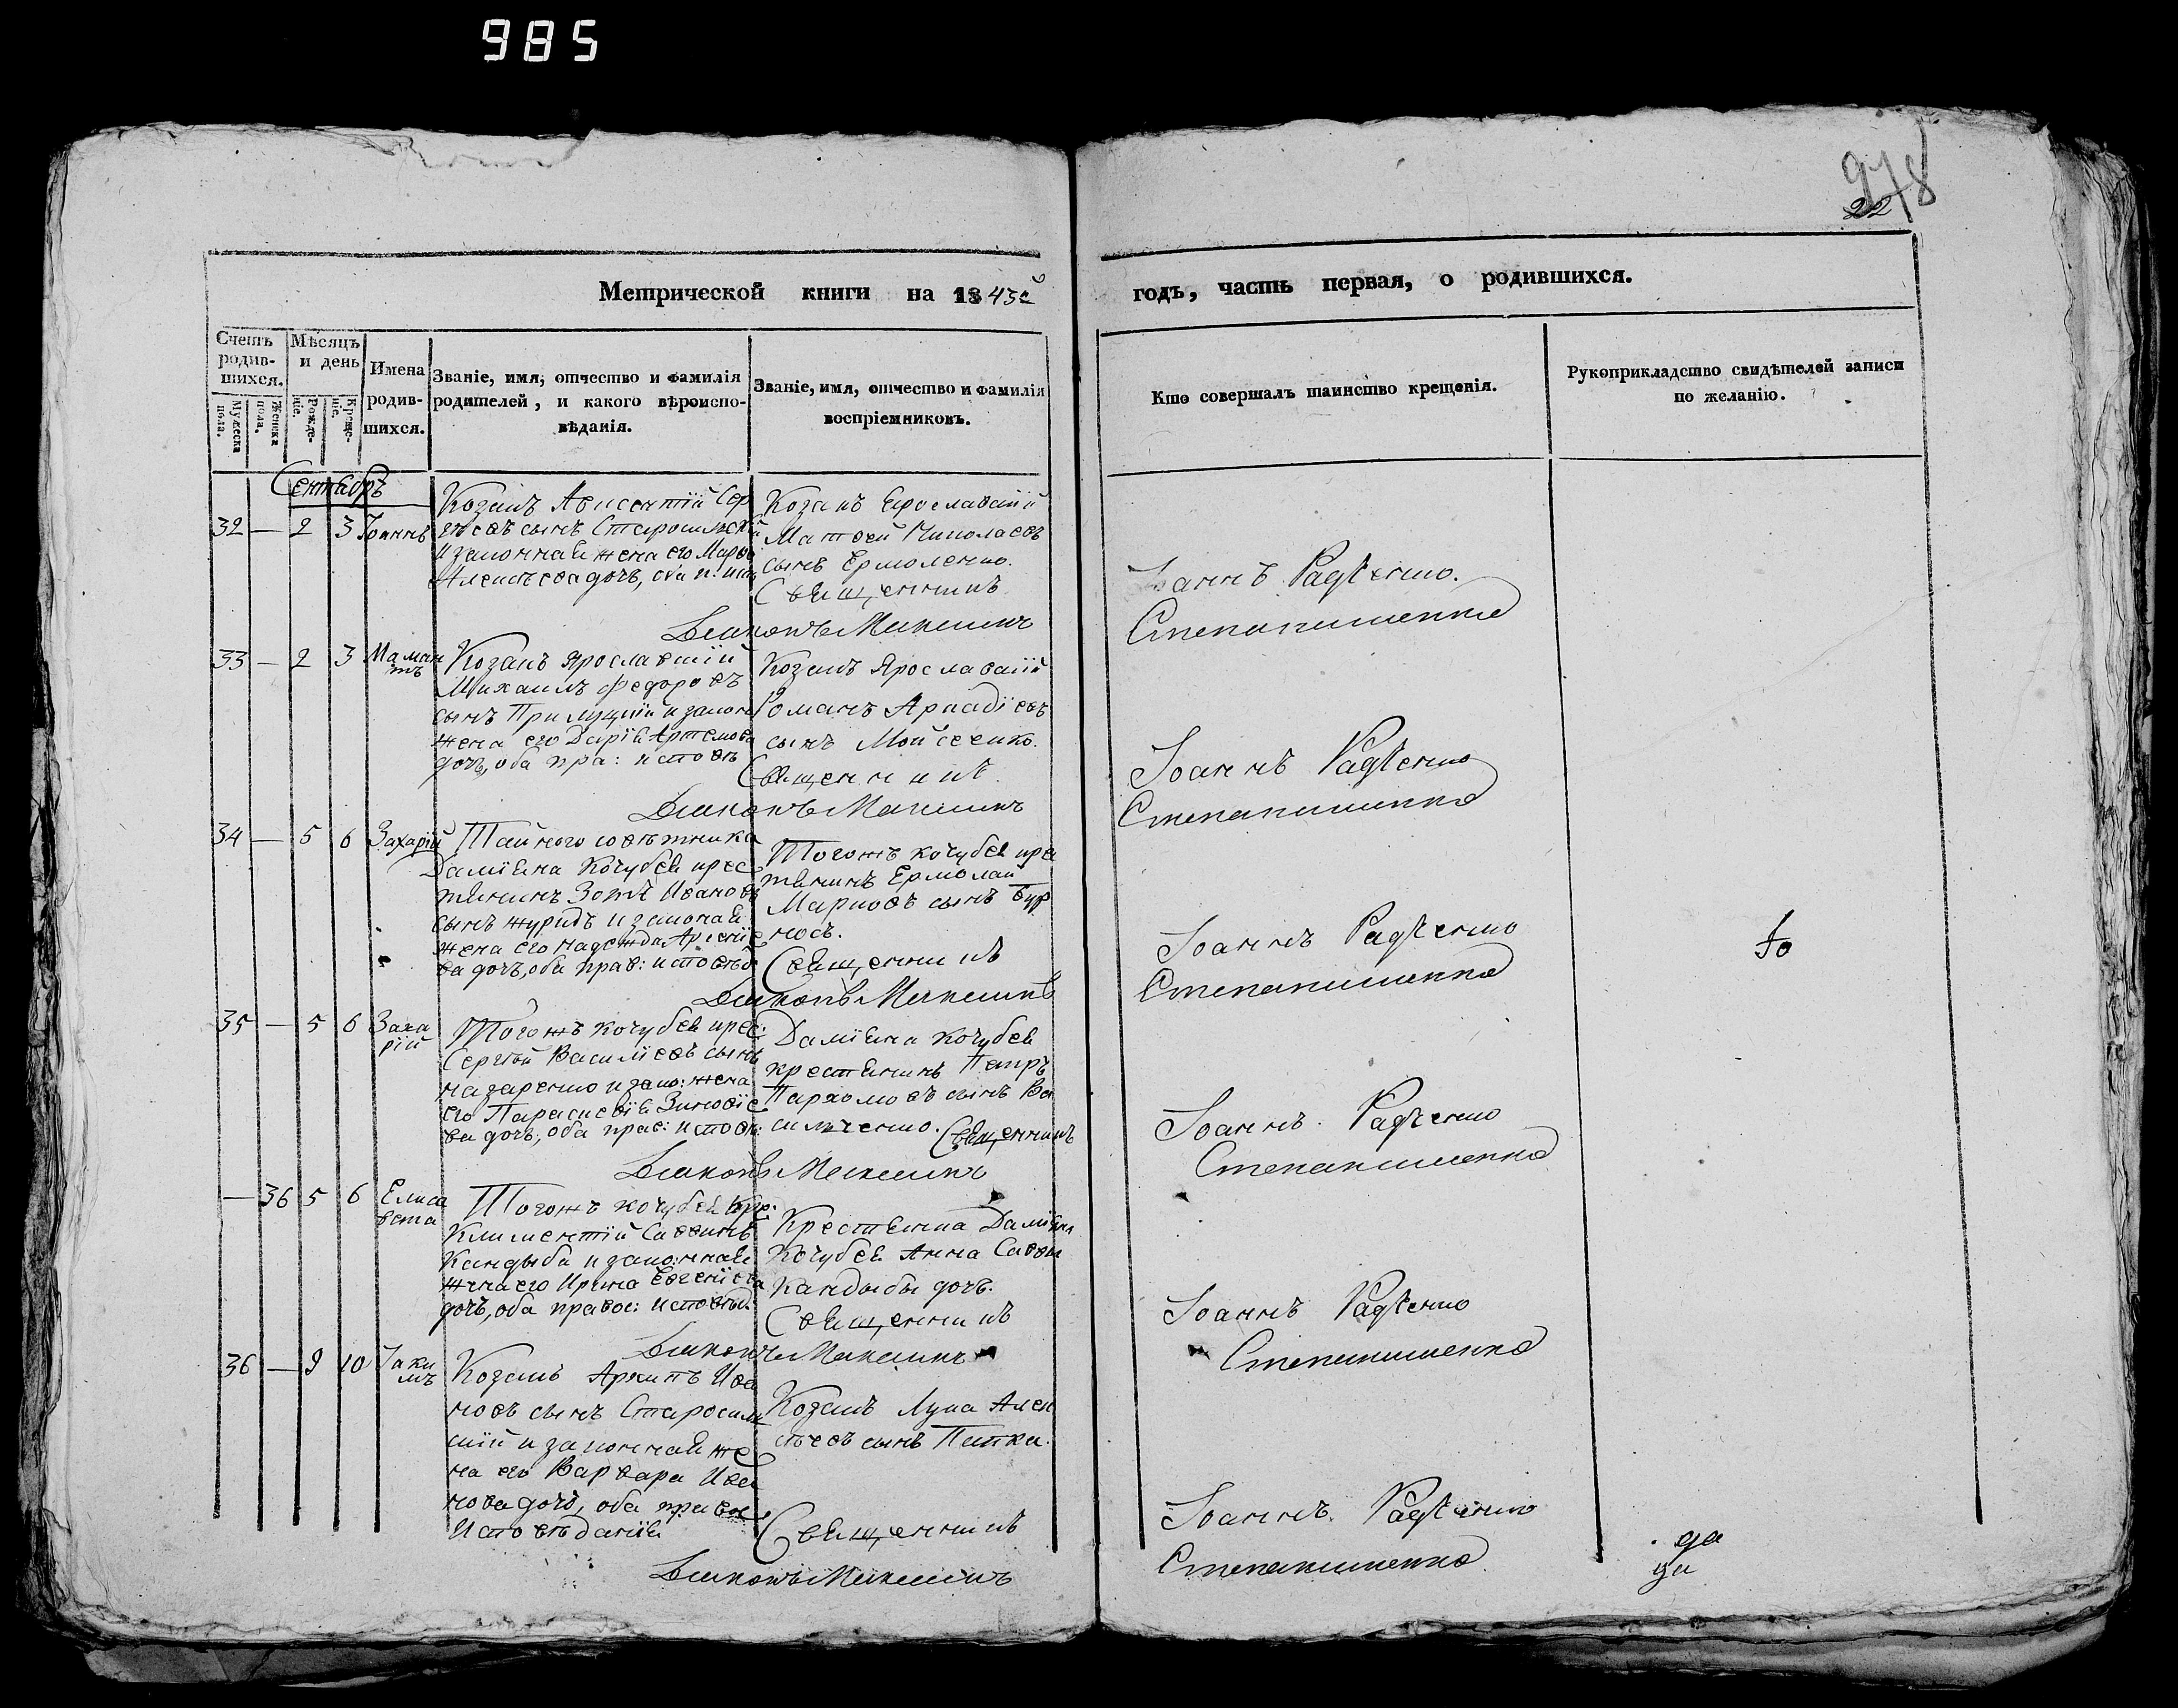 985
278
22
Метрической книги на 1843й
годъ, часть первая, о родившихся.
Счетъ родив-шихся.
Мужеска пола.
Женска пола.
Мѣсяцъ и день
Рожде-ніе.
Креще-ніе.
Имена родив-шихся.
Званіе, имя, отчество и фамилія
родителей, и какого вѣроиспо-
вѣданія.
Званіе, имя, отчество и фамилія
воспріемниковъ.
Кто совершалъ таинство крещенія.
Рукоприкладство свидѣтелей записи
по желанію.
Сентябрь
32 — 2 3 Іоаннъ
Козакъ Авксентій Сер
гѣевъ сынъ
и законная жена его Марфа
Алексѣева дочь, оба п:
Козакъ Ярославскій
Матфей Николаевъ
сынъ Ермоленко.
Священникъ
Іоаннъ Радченко.
Дьяконъ Максимъ
Степанишенко
33 — 2 3 Мамантъ
Козакъ Ярославскій
Михаилъ Федоровъ
сынъ Прилуцкій и закон
жена его Дарія Артемова
дочь, оба пра: исповѣ
Козакъ Ярославскій
Романъ Аркадіевъ
сынъ Мойсеенко.
Священникъ
Іоаннъ Радченко
Дьяконъ Максимъ
Степанишенко
34 — 5 6 Захарій
Тайного совѣтника
Даміяна Кочубея крес
тянинъ Зотъ Ивановъ
сынъ Журидъ и законая
жена его Надежда Арсеніе
ва дочь, оба прав: исповѣд
Тогожъ Кочубея кре
тянинъ Ермолай
Марковъ сынъ Бур
носъ.
Священникъ
Іоаннъ Радченко
Дьяконъ Максимъ
Степанишенко
35 — 5 6 Захарій
Тогожъ Кочубея крес:
Сергѣй Василіевъ сынъ
Назаренко и зако: жена
его Параскевія Зиновіе
ва дочь, оба прав: исповѣ:
Даміяна Кочубея
крестянинъ Петръ
Пархомовъ сынъ Ва
сильченко. Священникъ
Іоаннъ Радченко
Дьяконъ Максимъ
Степанишенко
— 36 5 6 Елисавета
Тогожъ Кочубея кре:
Климентій Саввинъ
Кандыба и законная
жена его Ирина Евгеніева
дочь, оба правос: исповѣд:
Крестянка Даміяна
Кочубея Анна Саввы
Кандыбы дочь.
Священникъ
Іоаннъ Радченко
Дьяконъ Максимъ
Степанишенко
36 — 9 10 Іакимъ
Козакъ Архипъ Ива
новъ сынъ Старосель
скій и законная же
на его Варвара Ива
нова дочь, оба правос.
Исповѣданія
Козакъ Лука Алек
сѣевъ сынъ Патка.
Священникъ
Іоаннъ Радченко
Дьяконъ Максимъ
Степанишенко